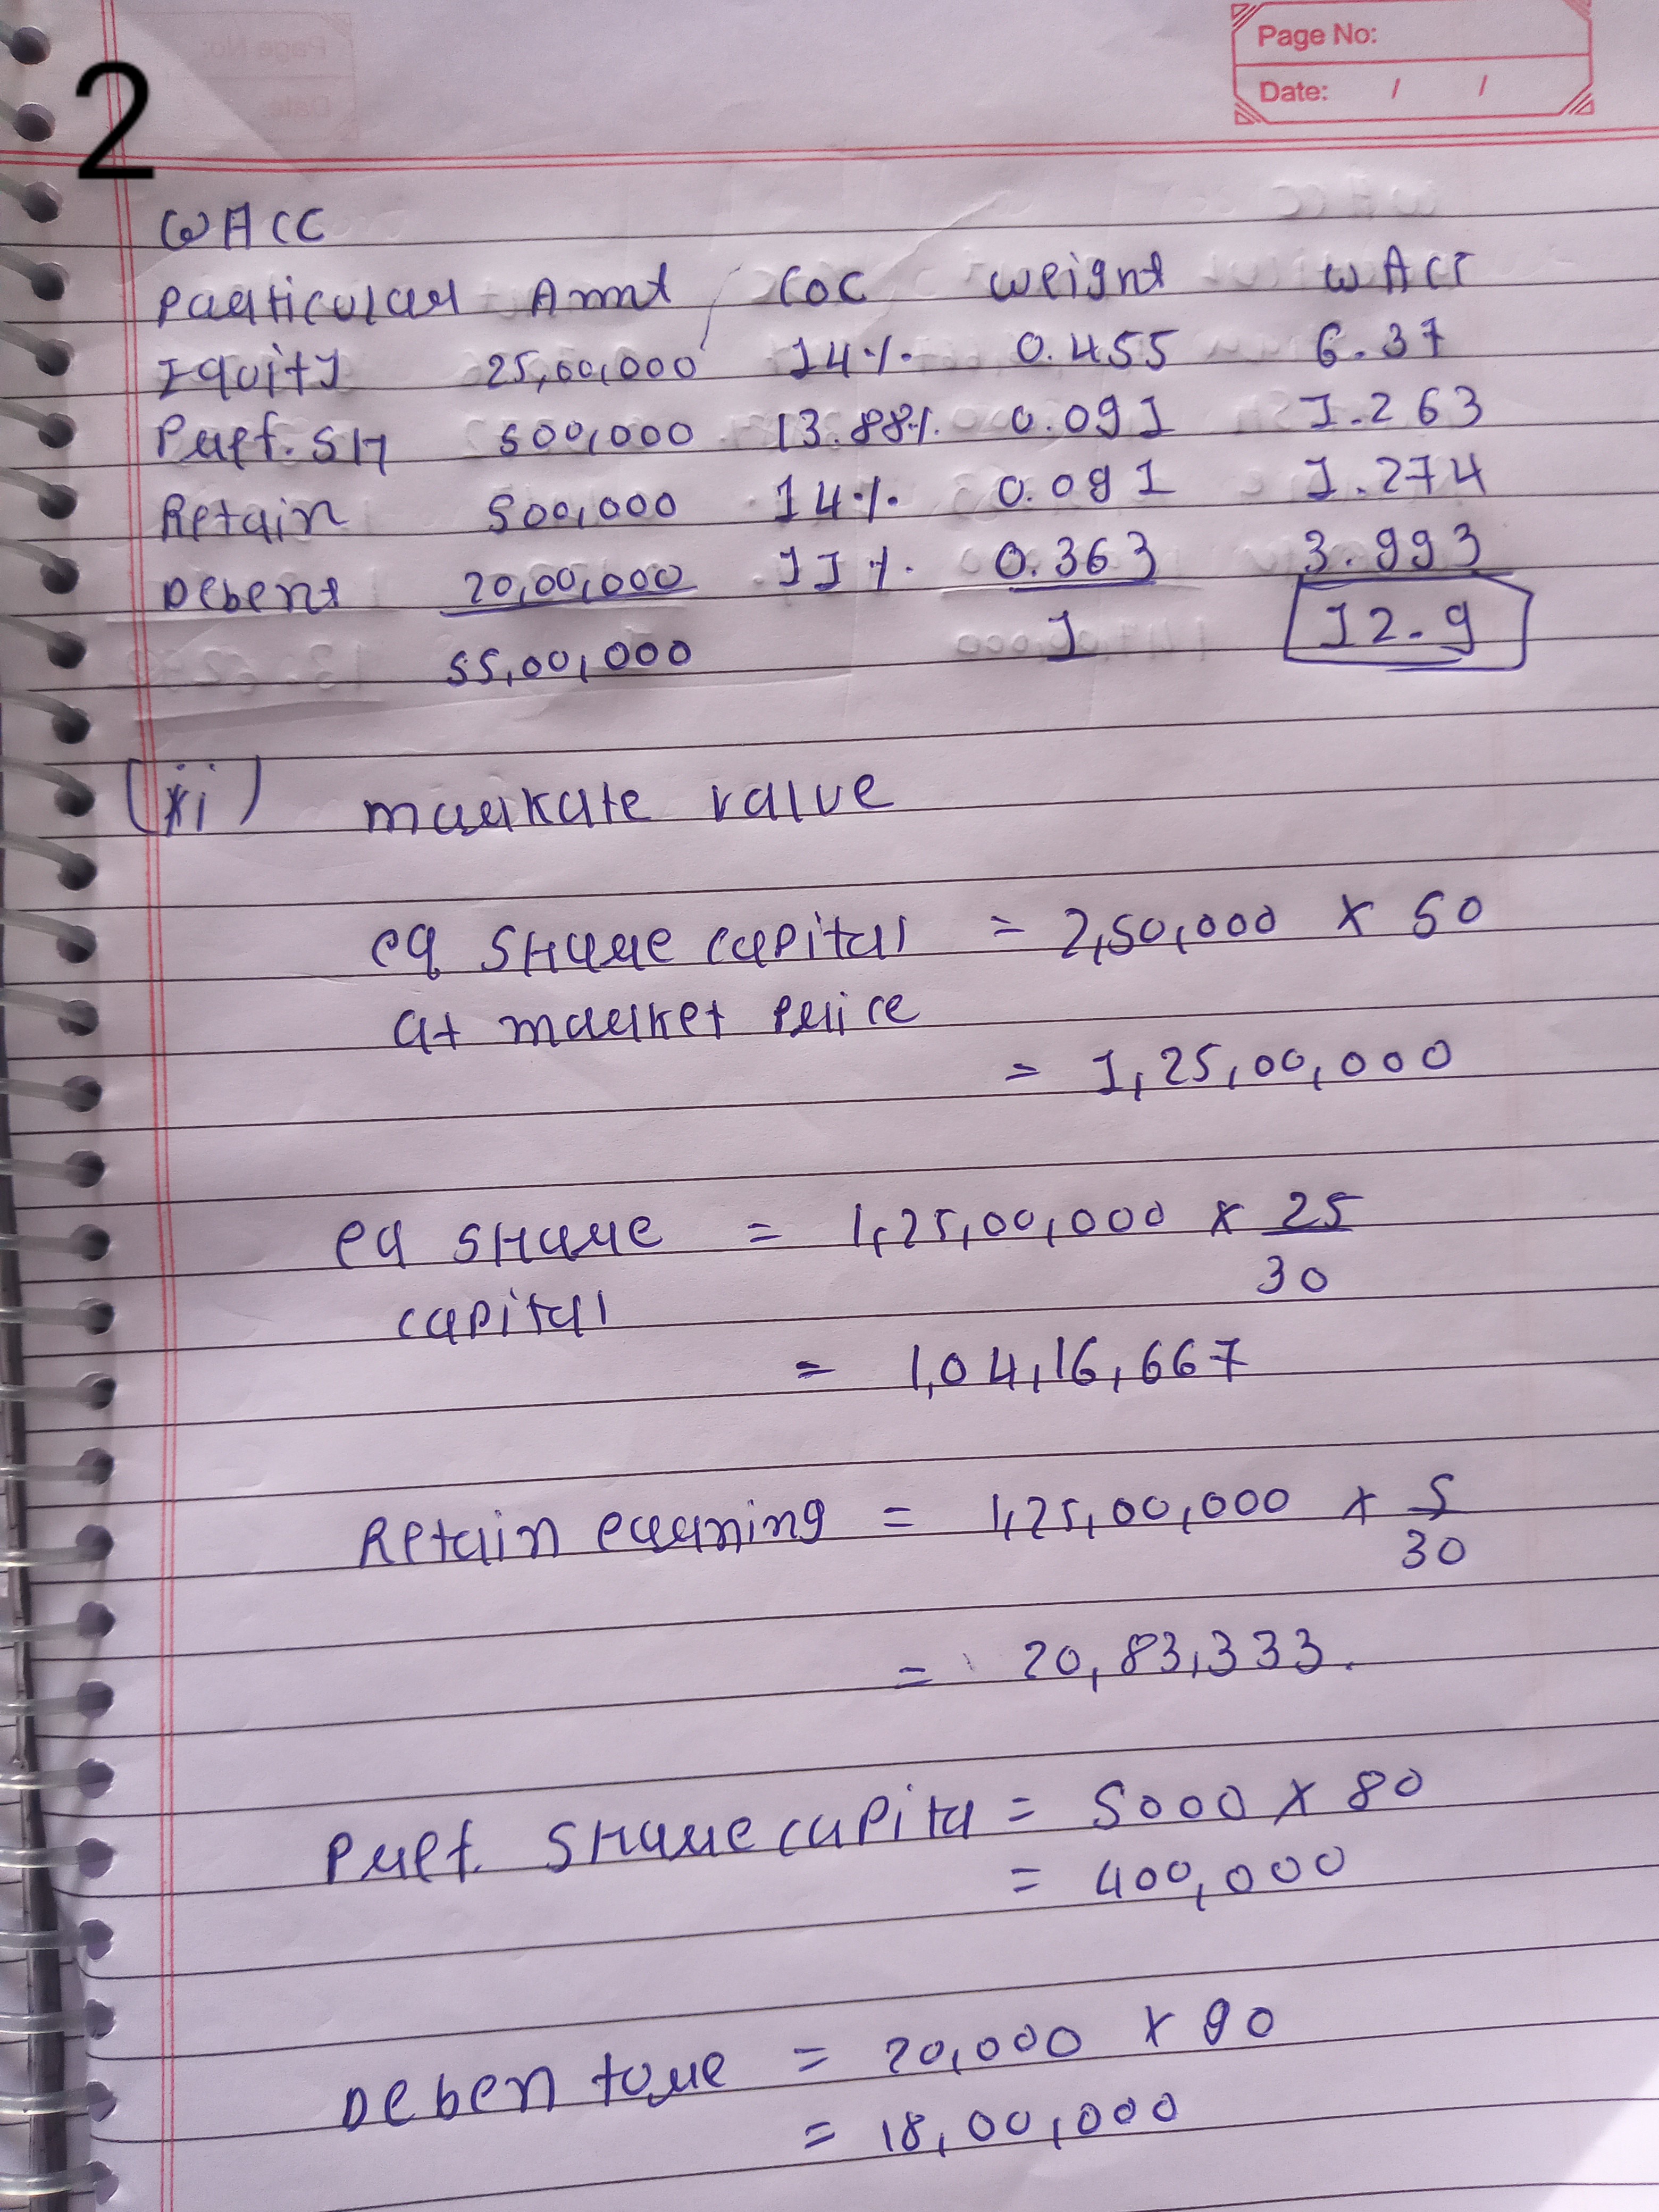 Page No:
Date: / /
2
WACC
Particular Amnt COC Weight WACC
Equity 25,00,000 14% 0.455 6.37
Pref. SH 500,000 13.88% 0.091 1.263
Retain 500,000 14% 0.091 1.274
Debent 20,00,000 11% 0.363 3.993
55,00,000 1 12.9
(ii) markate value
eq share capital = 2,50,000 × 50
at market price
= 1,25,00,000
eq share = 1,25,00,000 × 25
30
capital
= 1,04,16,667
Retain earning = 1,25,00,000 × 5
30
= 20,83,333.
Pref. share capita = 5000 × 80
= 400,000
Debenture = 20,000 × 90
= 18,00,000